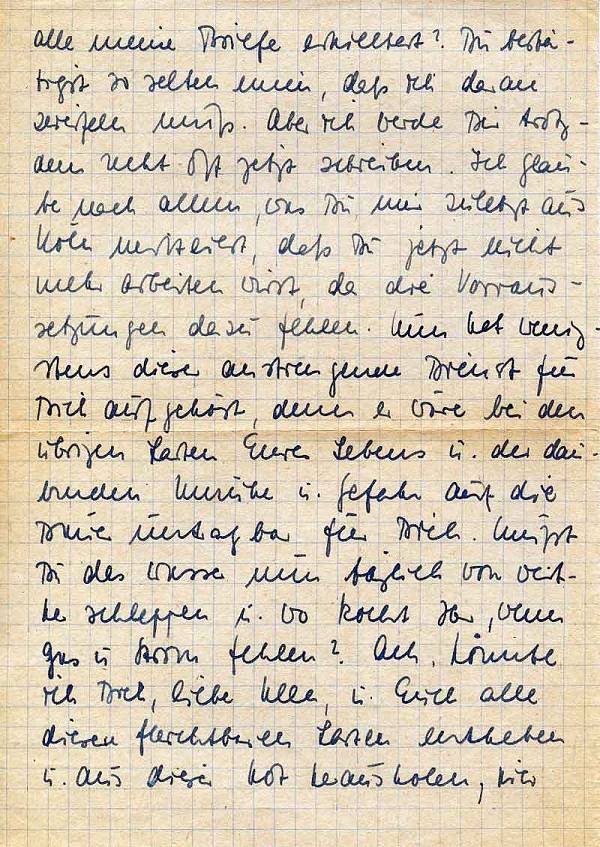 alle meine Briefe erhieltest? Du bestä-
tigst so selten einen, daß ich daran
zweifeln muß. Aber ich werde Dir trotz-
dem recht oft jetzt schreiben. Ich glau-
be nach allem, was Du mir zuletzt aus
Köln mitteilest, daß Du jetzt nicht
mehr arbeiten wirst, da die Vorraus-
setzungen dazu fehlen. Nun hat wenig-
stens dieser anstrengende Dienst für
Dich aufgehört, denn er wäre bei den
übrigen Lasten Eures Lebens u. der dau-
ernden Unruhe u. Gefahr auf die
Dauer untragbar für Dich. Mußt
Du das Wasser nun täglich von weit-
her schleppen u. wo kocht Ihr, wenn
Gas u Strom fehlen? Ach, könnte
ich Dich, liebe Ulla, u. Euch alle
diesen furchtbaren Lasten entheben
u. aus dieser Not herausholen, hier